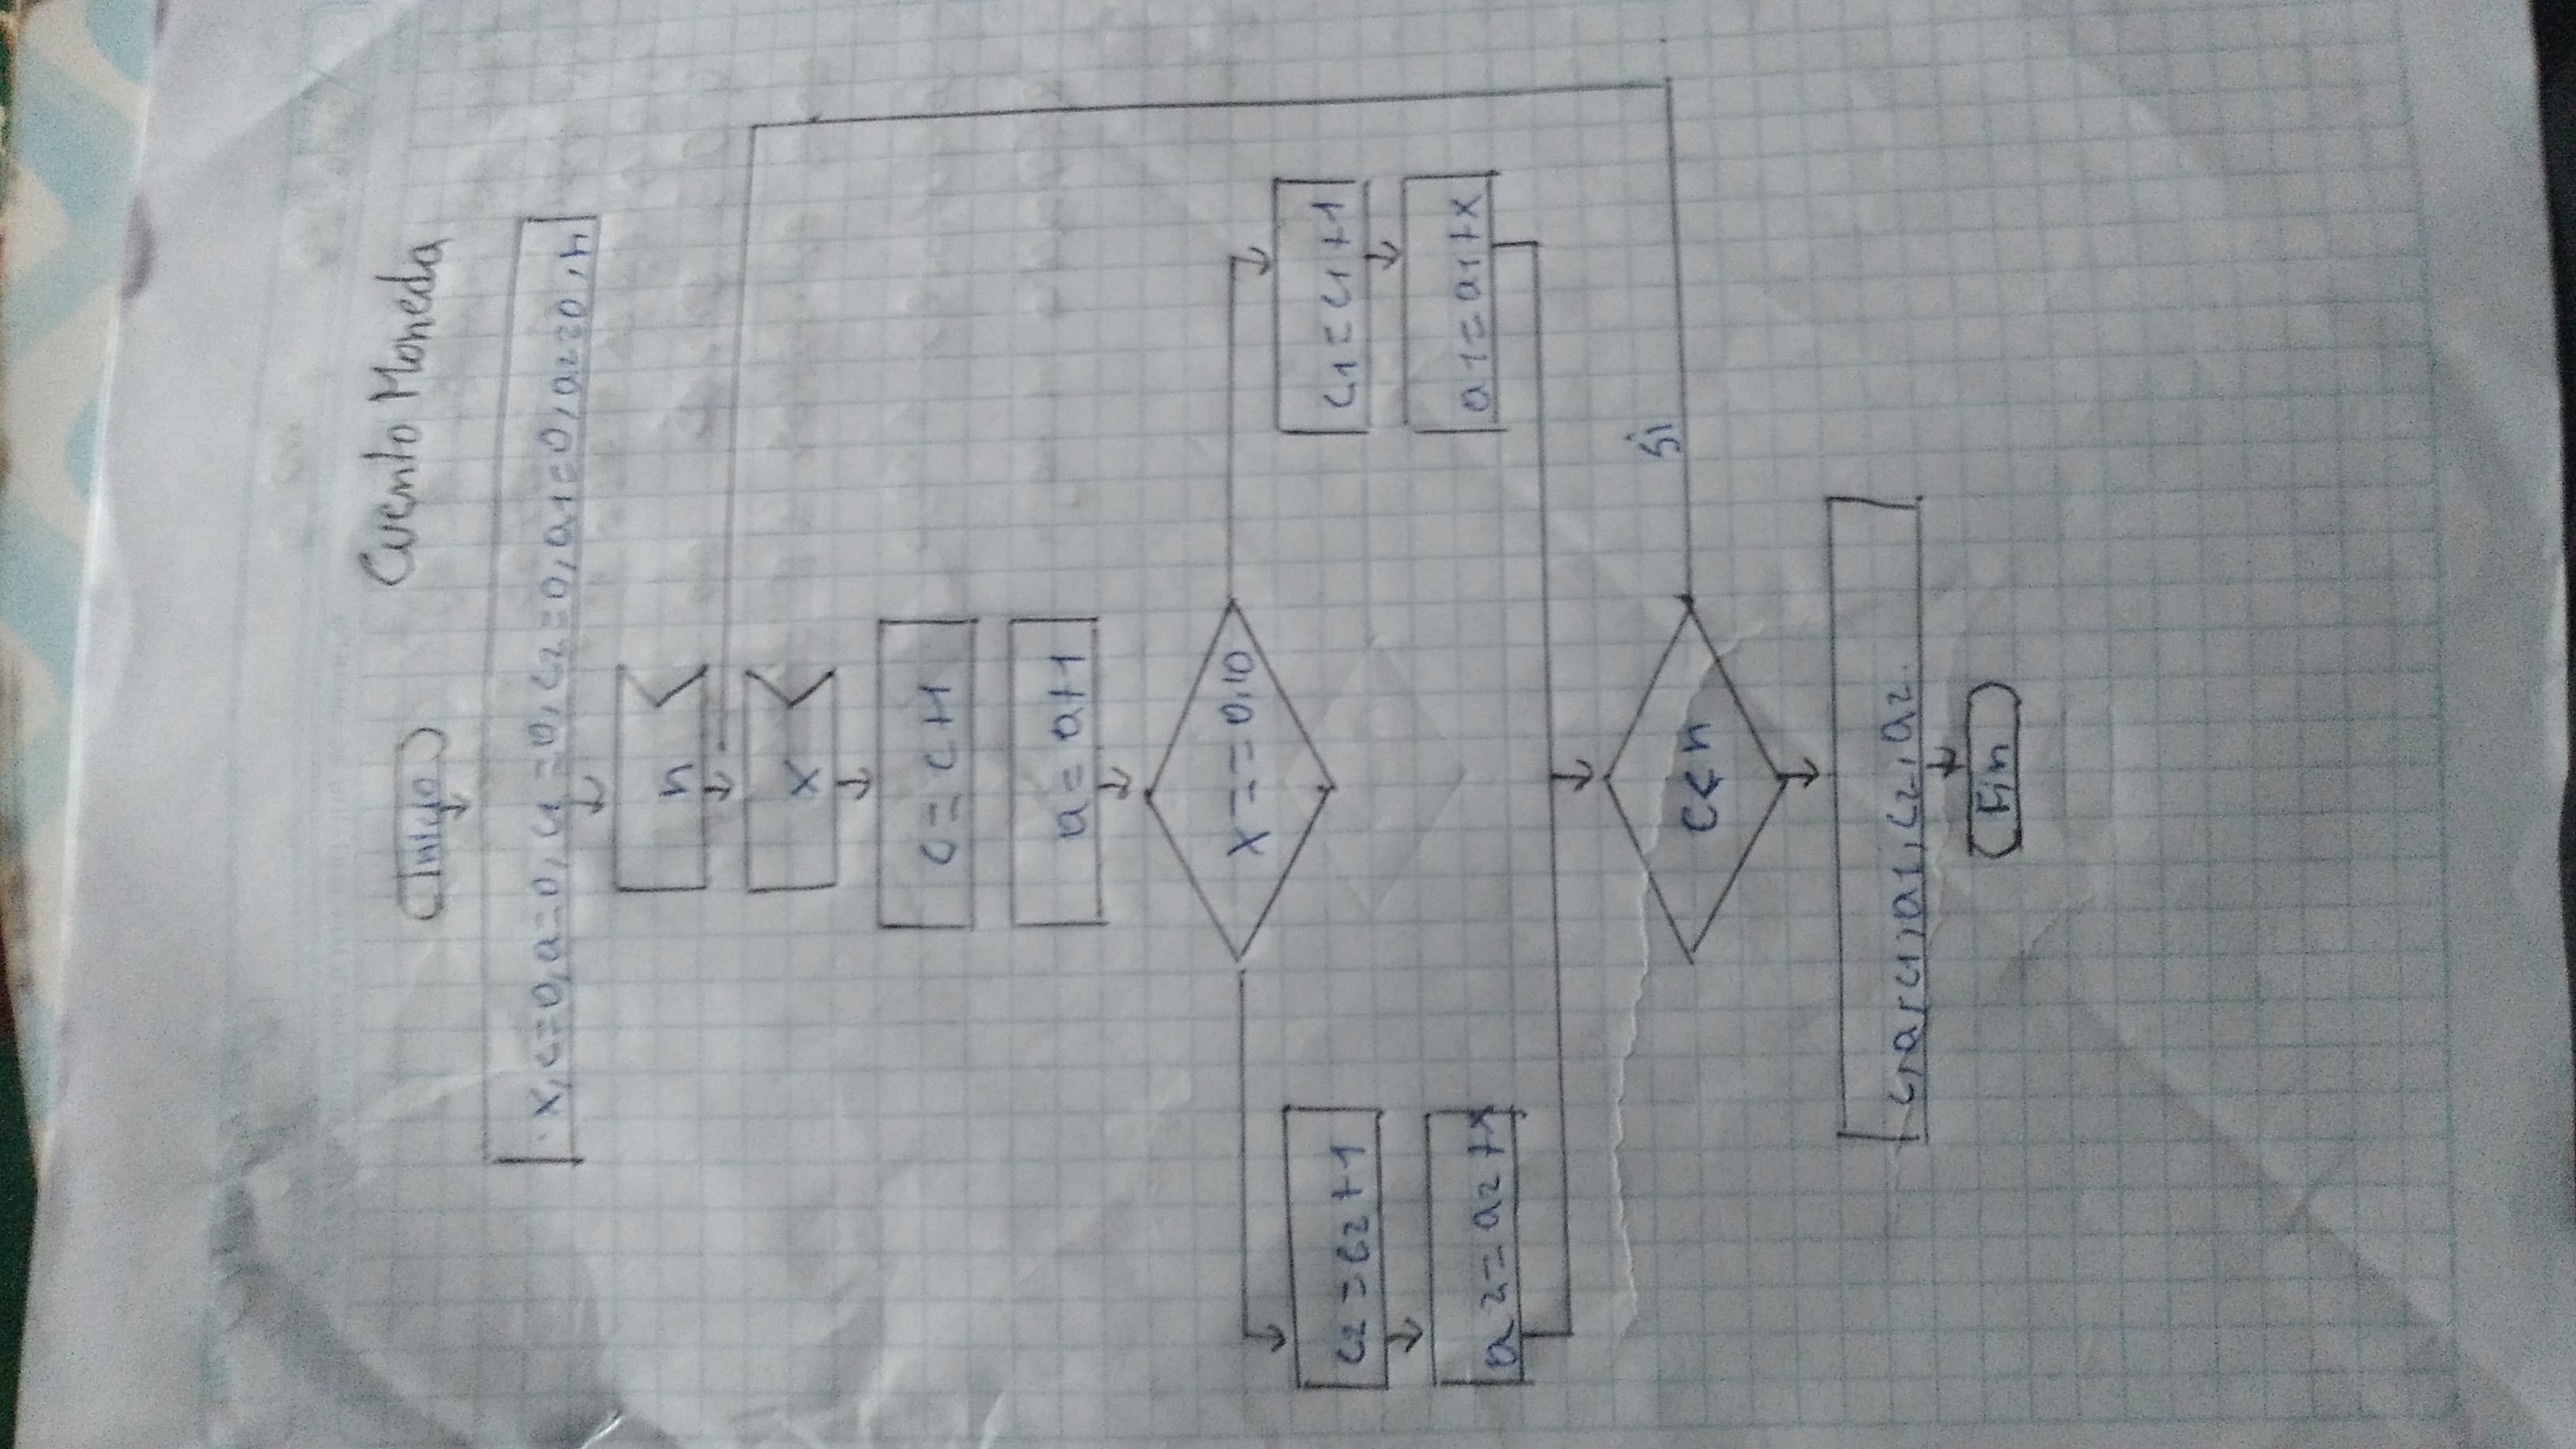 Cuento Moneda
Inicio
x, c=0, a=0, c1=0, c2=0, a1=0, a2=0, n
n
x
c = c+1
a = a+1
x == 0.10
c2 = c2+1
c1 = c1+1
a2 = a2+x
a1 = a1+x
Si
c<n
c, a, c1, a1, c2, a2.
Fin